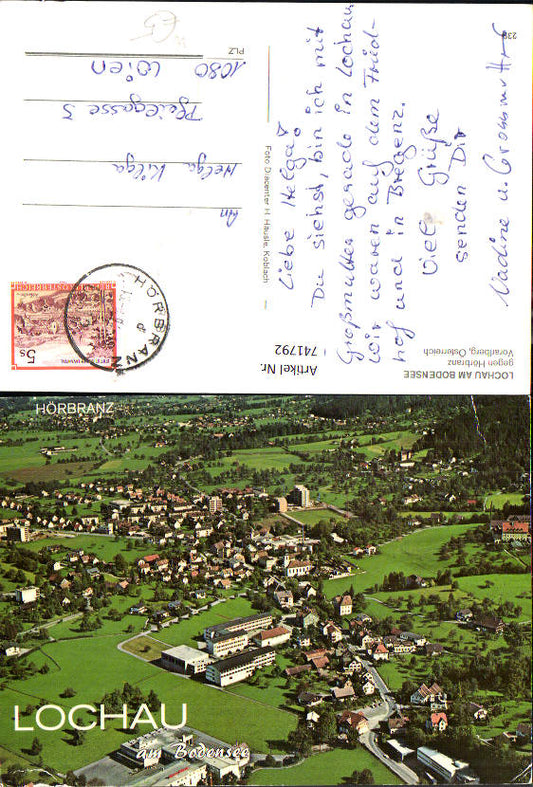 Liebe Helga!
Du siehst, bin ich mit
Großmutter gerade in Lochau
Wir waren auf dem Fried-
hof und in Bregenz.
Viele Grüße
senden Dir
Nadine u. Grossmutter
An
Helga Killga
Pfeilgasse 3
1080 Wien
PLZ
Foto Diacenter H. Häusle, Koblach
HÖRBRANZ
5s
REPUBLIK ÖSTERREICH
Artikel Nr.
741792
LOCHAU AM BODENSEE
gegen Hörbranz
Vorarlberg, Österreich
HÖRBRANZ
LOCHAU
am Bodensee